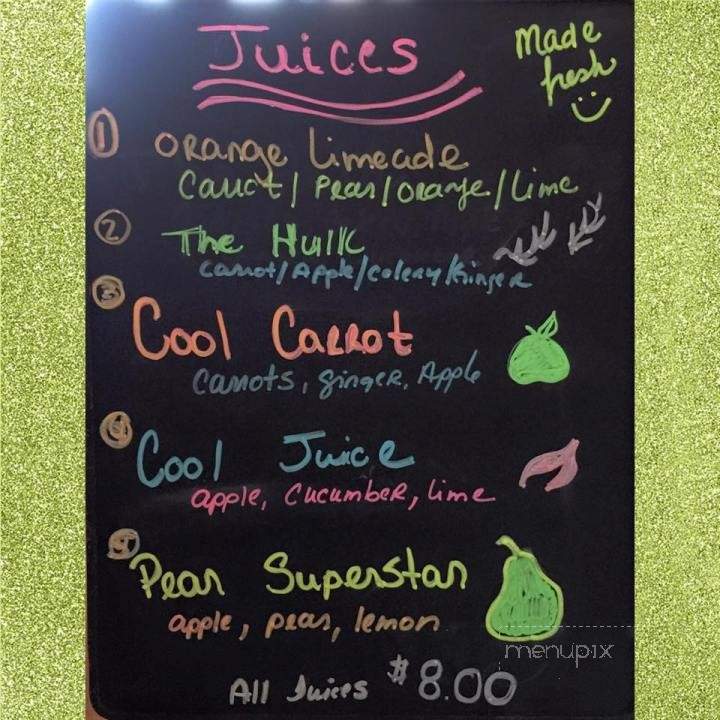 Juices
Made
fresh
1 Orange Limeade
Carrot / Pear / Orange / Lime
2 The Hulk
Carrot / Apple / Celery / Ginger
3 Cool Carrot
Carrots, ginger, Apple
4 Cool Juice
apple, cucumber, lime
5 Pear Superstar
apple, pear, lemon
All Juices $8.00
menupix